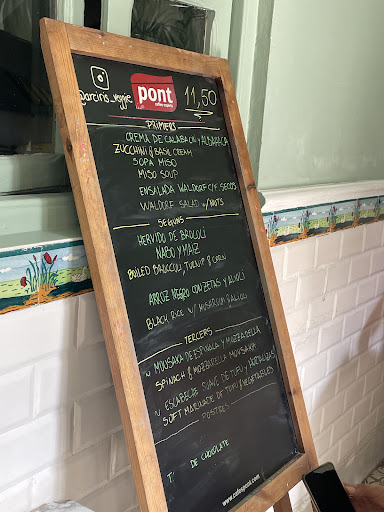 @arciris_veggie
pont
cafès expres
11,50
PRIMERS
CREMA DE CALABACIN y ALBAHACA
ZUCCHINI & BASIL CREAM
SOPA MISO
MISO SOUP
ENSALADA WALDORF C/F SECOS
WALDORF SALAD w/ NUTS
SEGUNS
HERVIDO DE BROCOLI
NABO Y MAIZ
BOILED BROCCOLI, TURNIP & CORN
ARROZ NEGRO CON SETAS Y ALIOLI
BLACK RICE w/ MUSHROOM & ALIOLI
TERCERS
MOUSAKA DE ESPINACA Y MOZZARELLA
SPINACH & MOZZARELLA MOUSAKA
ESCABECHE SUAVE DE TOFU y HORTALIZAS
SOFT MARINADE OF TOFU & VEGETABLES
POSTRES
T. DE CHOCOLATE
www.cafespont.com